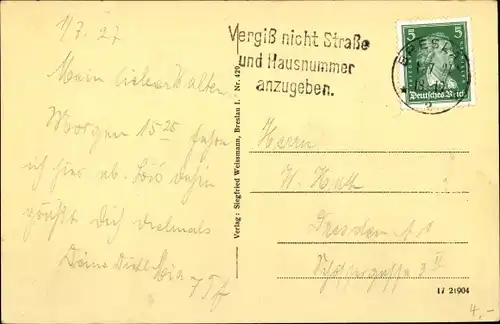 1/7.27
Mein lieber Walter
Morgen 15 25 fahre
ich hier ab. Bis dahin
grüßt Dich vielmals
Deine Dich
Vergiß nicht Straße
und Hausnummer
anzugeben.
5 5
Deutsches Reich
BRESLAU
2
Verlag: Siegfried Weissmann, Breslau I. - Nr. 429
Herrn
W.
Dresden A 1
17 21904
4,-